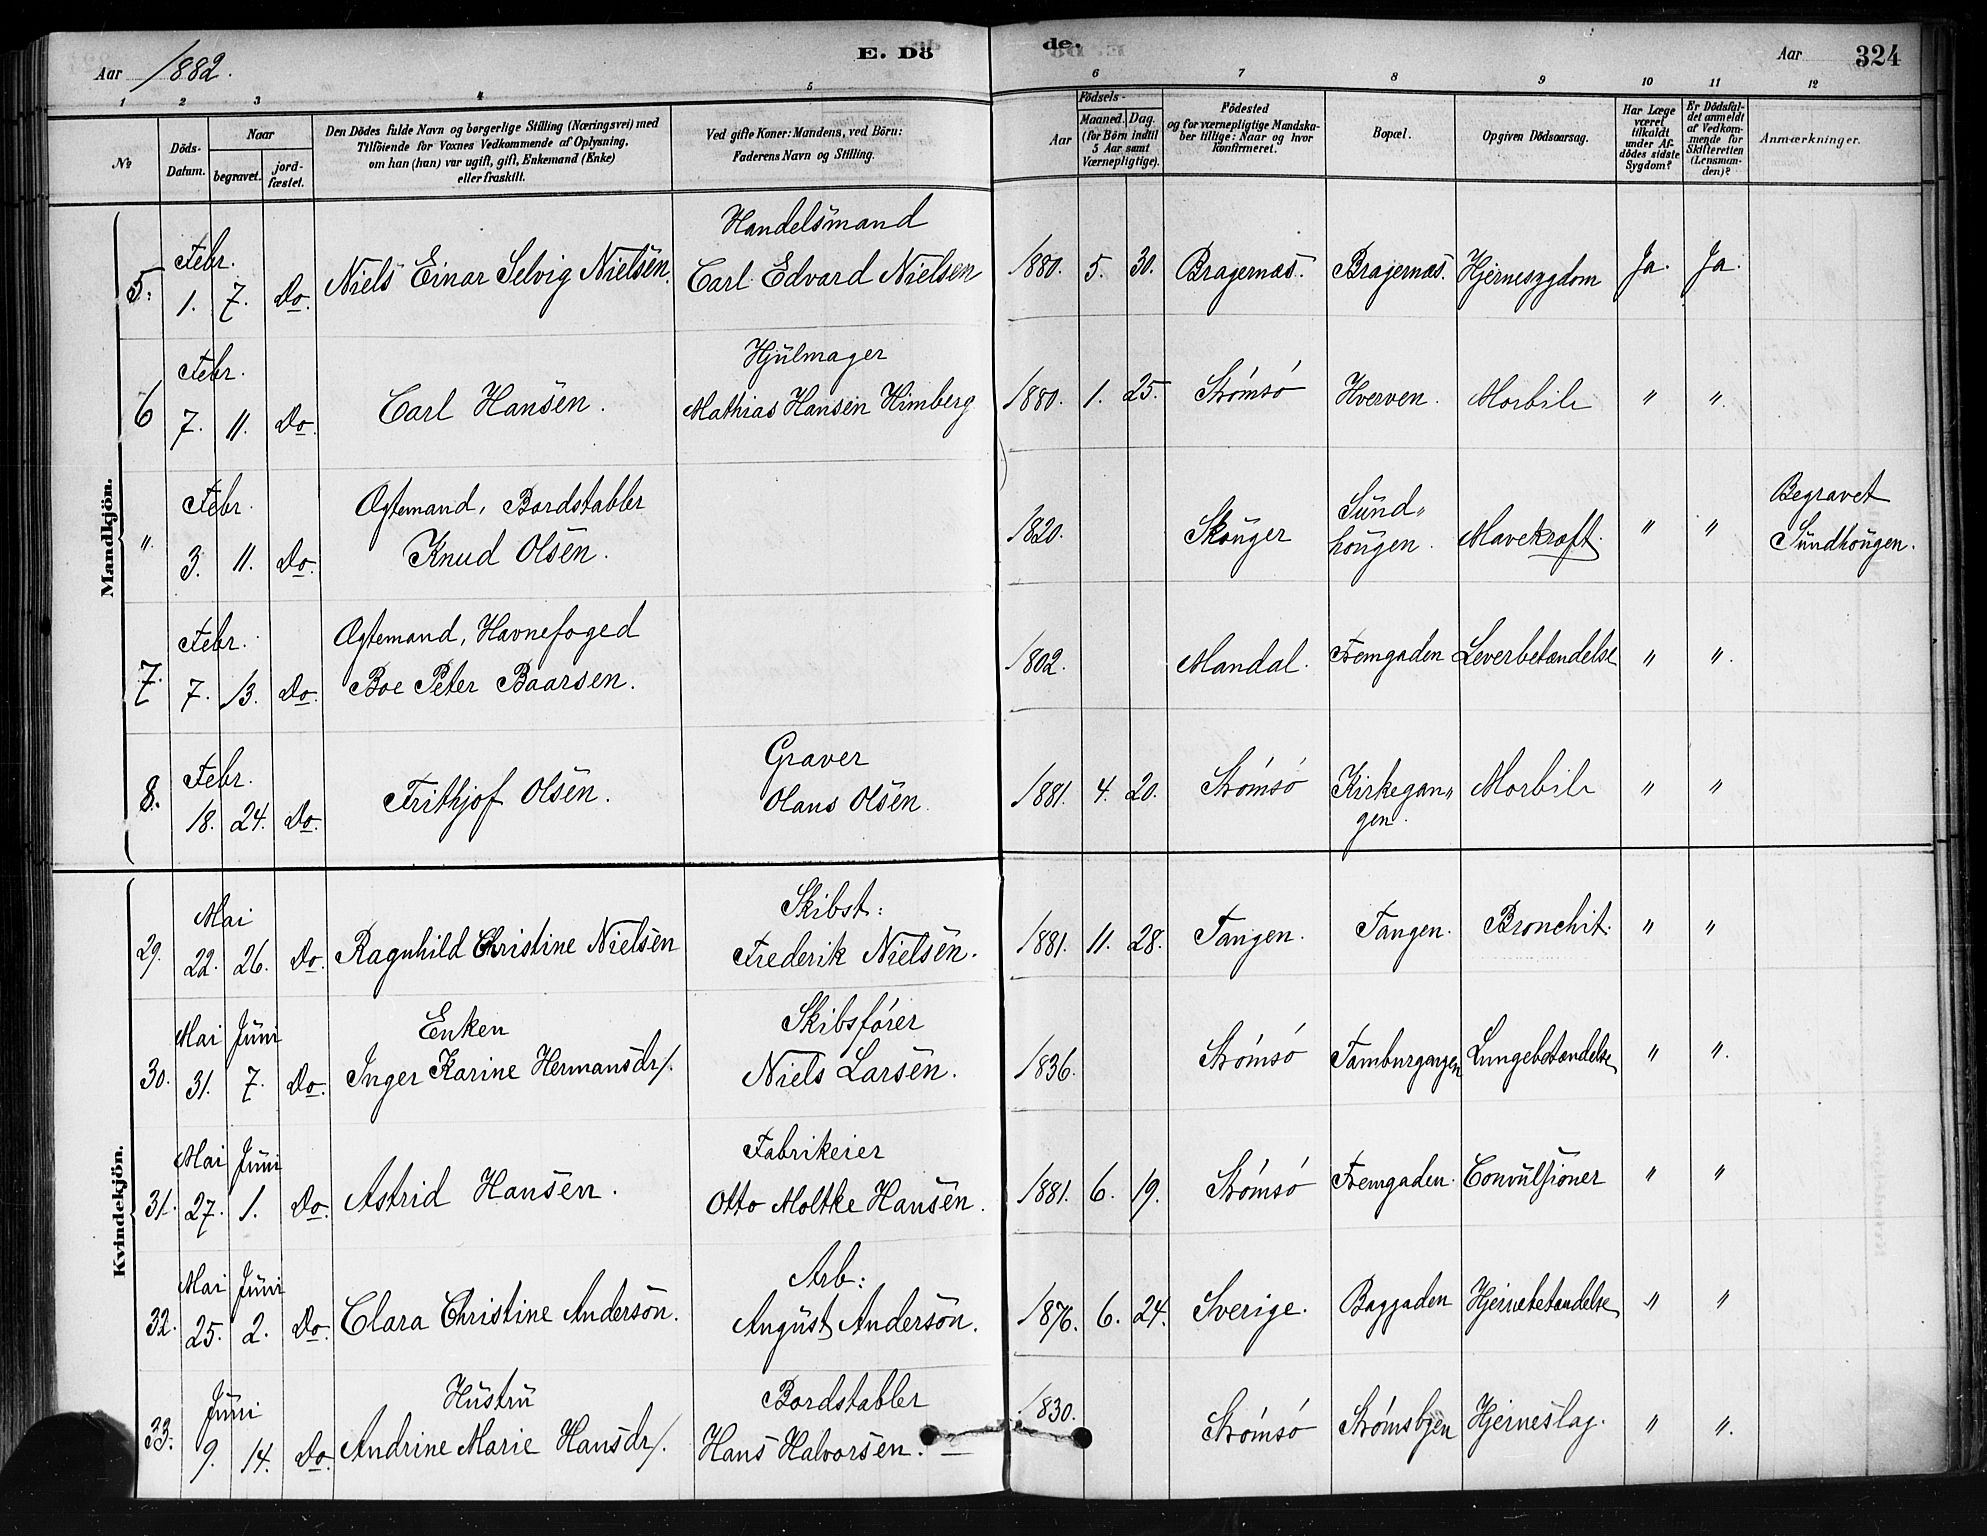 Aar 1882.
E. Dö
de.
Aar
324
1 2 3 4 5 6 7 8 9 10 11 12
No
Döds-
Datum.
Naar
begravet.
jord-
fæstet.
Den Dödes fulde Navn og borgerlige Stilling (Næringsvei) med
Tilföiende for Voxnes Vedkommende af Oplysning,
om han (hun) var ugift, gift, Enkemand (Enke)
eller fraskilt.
Ved gifte Koner: Mandens, ved Börn:
Faderens Navn og Stilling.
Födsels-
Aar
Maaned. Dag.
(for Börn indtil
5 Aar samt
Værnepligtige).
Födested
og for værnepligtige Mandska-
ber tillige: Naar og hvor
konfirmeret.
Bopæl.
Opgiven Dödsaarsag.
Har Læge
været
tilkaldt
under Af-
dödes sidste
Sygdom?
Er Dödsfal-
det anmeldt
af Vedkom-
mende for
Skifteretten
(Lensman-
den)?
Anmærkninger.
Mandkjön.
Febr. Handelsmand
5. 1. 7. Do. Niels Einar Selvig Nielsen. Carl Edvard Nielsen 1880. 5. 30. Bragernæs. Bragernæs. Hjernesygdom Ja. Ja.
Febr. Hjulmager
6 7. 11. Do. Carl Hansen. Mathias Hansen Himberg 1880. 1. 25. Strømsö Hverven. Morbili " "
Febr. Ægtemand, Bordstabler Sund" Begravet
". 3. 11. Do. Knud Olsen. 1820. Skouger hougen. Mavekræft. " " Sundhougen.
Febr. Ægtemand, Havnefoged
7. 7. 13. Do. Boe Peter Baarsen. 1802. Mandal. Fremgaden Leverbetændelse " "
Febr. Graver
8. 18. 24. Do. Frithjof Olsen. Olaus Olsen. 1881. 4. 20. Strömsö Kirkegan" Morbili " "
gen.
Kvindekjön.
Mai Skibst:
29. 22. 26. Do. Ragnhild Christine Nielsen Frederik Nielsen. 1881. 11. 28. Tangen. Tangen. Bronchit. " "
Mai Juni Enken Skibsförer
30. 31. 7. Do. Inger Karine Hermansdr/. Niels Larsen. 1836. Strömsö Tamburgangen Lungebetændelse " "
Mai Juni Fabrikeier
31. 27. 1. Do. Astrid Hansen. Otto Moltke Hansen. 1881. 6. 19. Strömsö Fremgaden. Convulsioner " "
Mai Juni Arb:
32. 25. 2. Do. Clara Christine Anderson. August Anderson. 1876. 6. 24. Sverige. Baggaden Hjernebetændelse " "
Juni Hustru Bordstabler
33. 9. 14. Do. Andrine Marie Hansdr/. Hans Halvorsen. 1830. Strömsö Strömsbyen Hjerneslag. " "